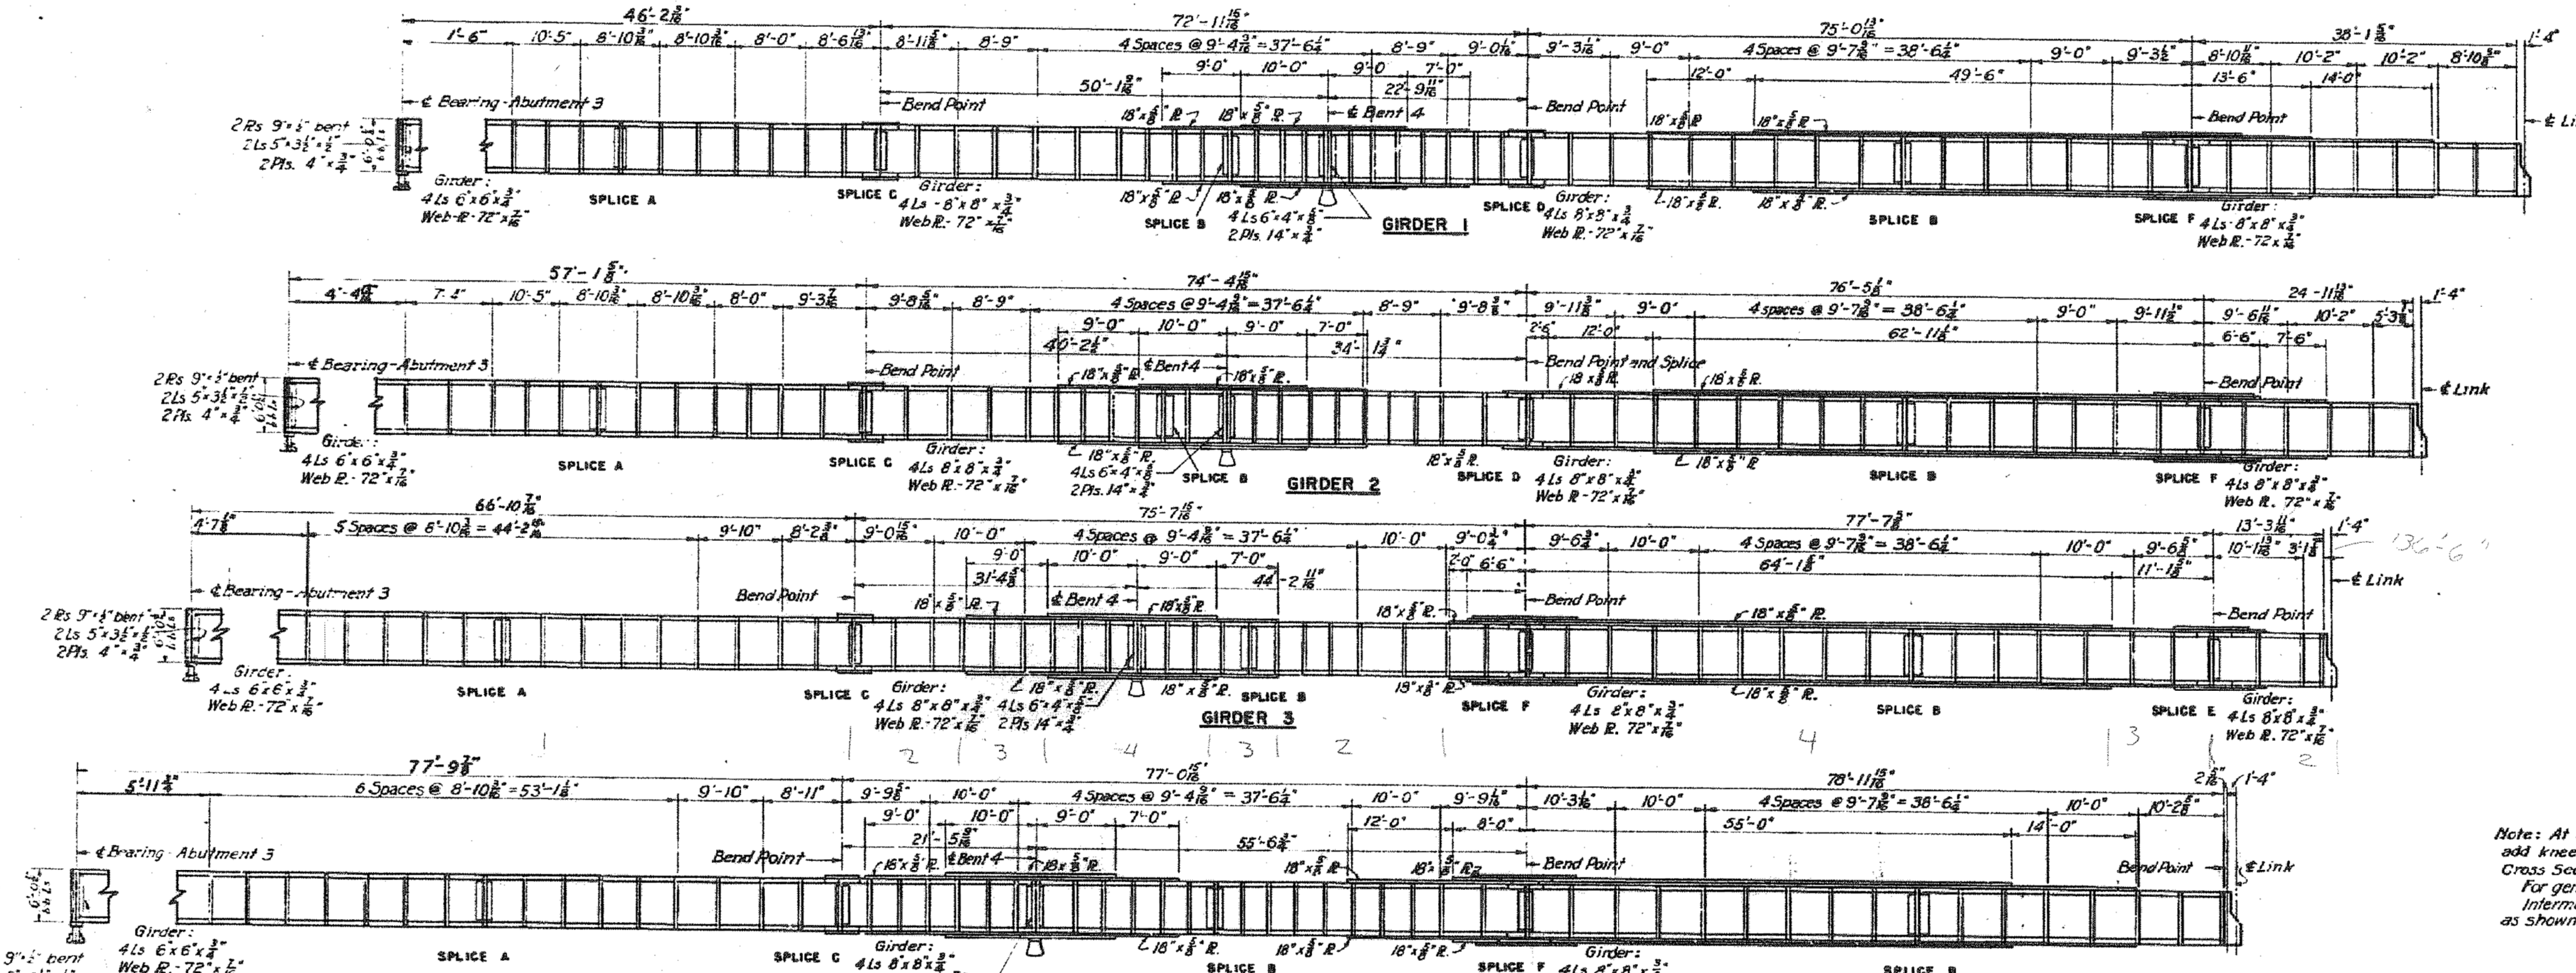 46'-2 3/16" 72'-11 15/16" 75'-0 13/16" 38'-1 5/16" 1'-4"
1'-6" 10'-5" 8'-10 3/16" 8'-10 3/16" 8'-0" 8'-6 13/16" 8'-11 5/8" 8'-9" 4 Spaces @ 9'-4 9/16" = 37'-6 1/4" 8'-9" 9'-0 1/16" 9'-3 1/16" 9'-0" 4 Spaces @ 9'-7 9/16" = 38'-6 1/4" 9'-0" 9'-3 1/2" 8'-10 11/16" 10'-2" 10'-2" 8'-10 5/8"
9'-0" 10'-0" 9'-0 7'-0" 12'-0" 49'-6" 13'-6" 14'-0"
50'-1 9/16" 22'-9 11/16"
₵ Bearing-Abutment 3 Bend Point ₵ Bent 4 Bend Point Bend Point ₵
18"x 5/8" ℞. 18"x 5/8" ℞. 18"x 5/8" ℞ 18"x 5/8" ℞.
2 ℞s 9"x 1/2" bent
2 Ls 5"x 3 1/2"x 1/2"
2 Pls. 4"x 3/4"
6'-0"
Girder:
4 Ls 6"x6"x 3/4"
Web ℞-72"x 7/16"
SPLICE A
SPLICE C
Girder:
4 Ls -8"x8"x 3/4"
Web ℞.-72"x 7/16"
18"x 5/8" ℞. 18"x 5/8" ℞.
SPLICE B
4 Ls 6"x4"x 5/8"
2 Pls. 14"x 3/4"
GIRDER 1
SPLICE D
Girder:
4 Ls 8"x8"x 3/4"
Web ℞.-72"x 7/16"
18"x 5/8" ℞. 18"x 5/8" ℞.
SPLICE B
SPLICE F
Girder:
4 Ls-8"x8"x 3/4"
Web ℞.-72 x 7/16"
57'-1 5/8" 74'-4 15/16" 76'-5 1/8" 24'-11 13/16" 1'-4"
10'-5" 8'-10 3/16" 8'-10 3/16" 8'-0" 9'-3 7/16" 9'-8 5/16" 8'-9" 4 Spaces @ 9'-4 9/16" = 37'-6 1/4" 8'-9" 9'-8 3/8" 9'-11 3/8" 9'-0" 4 spaces @ 9'-7 9/16" = 38'-6 1/4" 9'-0" 9'-11 1/2" 9'-6 11/16" 10'-2"
9'-0" 10'-0" 9'-0" 7'-0" 2'-6" 12'-0" 62'-11 1/8" 6'-6" 7'-6"
40'-2 1/2" 34'-1 3/4"
₵ Bearing-Abutment 3 Bend Point ₵ Bent 4 Bend Point and Splice Bend Point ₵ Link
18"x 5/8" ℞. 18"x 5/8" ℞. 18"x 5/8" ℞. 18"x 5/8" ℞.
2 ℞s 9"x 1/2" bent
2 Ls 5"x 3 1/2"x 1/2"
2 Pls. 4"x 3/4"
6'-0"
Girder:
4 Ls 6"x6"x 3/4"
Web ℞.-72"x 7/16"
SPLICE A
SPLICE C
Girder:
4 Ls 8"x8"x 3/4"
Web ℞.-72"x 7/16"
18"x 5/8" ℞.
4 Ls 6"x4"x 5/8"
2 Pls. 14"x 3/4"
SPLICE B
GIRDER 2
18"x 5/8" ℞.
SPLICE D
Girder:
4 Ls 8"x8"x 3/4"
Web ℞-72"x 7/16"
18"x 5/8" ℞
SPLICE B
SPLICE F
Girder:
4 Ls 8"x8"x 3/4"
Web ℞. 72"x 7/16"
66'-10 7/16" 75'-7 15/16" 77'-7 5/8" 13'-3 11/16" 1'-4"
4'-7 1/8" 5 Spaces @ 8'-10 3/16" = 44'-2 15/16" 9'-10" 8'-2 3/8" 9'-0 15/16" 10'-0" 4 Spaces @ 9'-4 9/16" = 37'-6 1/4" 10'-0" 9'-0 3/4" 9'-6 3/4" 10'-0" 4 Spaces @ 9'-7 9/16" = 38'-6 1/4" 10'-0" 9'-6 5/8" 10'-1 13/16"
136'-6"
9'-0" 10'-0" 9'-0" 7'-0" 2'-0" 6'-6" 64'-1 5/8" 11'-1 5/8"
31'-4 5/8" 44'-2 11/16"
₵ Bearing-Abutment 3 Bend Point ₵ Bent 4 Bend Point Bend Point ₵ Link
18"x 5/8" ℞. 18"x 5/8" ℞. 18"x 5/8" ℞. 18"x 5/8" ℞.
2 ℞s 9"x 1/2" bent
2 Ls 5"x 3 1/2"x 1/2"
2 Pls. 4"x 3/4"
6'-0"
Girder.
4 Ls 6"x6"x 3/4"
Web ℞.-72"x 7/16"
SPLICE A
SPLICE C
Girder:
4 Ls 8"x8"x 3/4"
Web ℞.-72"x 7/16"
18"x 5/8" ℞.
4 Ls 6"x4"x 5/8"
2 Pls 14"x 3/4"
18"x 5/8" ℞.
SPLICE B
GIRDER 3
18"x 5/8" ℞.
SPLICE F
Girder:
4 Ls 8"x8"x 3/4"
Web ℞. 72"x 7/16"
18"x 5/8" ℞.
SPLICE B
SPLICE E
Girder:
4 Ls 8"x8"x 3/4"
Web ℞. 72"x 7/16"
1 2 3 4 3 2 4 3 2
77'-9 7/8" 77'-0 15/16" 78'-11 15/16" 2 5/16" 1'-4"
5'-11 3/4" 6 Spaces @ 8'-10 3/16" = 53'-1 1/8" 9'-10" 8'-11" 9'-9 5/8" 10'-0" 4 Spaces @ 9'-4 9/16" = 37'-6 1/4" 10'-0" 9'-9 1/16" 10'-3 1/16" 10'-0" 4 Spaces @ 9'-7 9/16" = 38'-6 1/4" 10'-0" 10'-2 5/8"
9'-0" 10'-0" 9'-0" 7'-0" 12'-0" 8'-0" 55'-0" 14'-0"
21'-5 9/16" 55'-6 3/4"
₵ Bearing-Abutment 3 Bend Point ₵ Bent 4 Bend Point Bend Point ₵ Link
18"x 5/8" ℞. 18"x 5/8" ℞. 18"x 5/8" ℞ 18"x 5/8" ℞.
6'-0"
Girder:
4 Ls 6"x6"x 3/4"
Web ℞.-72"x
9"x 1/2" bent
SPLICE A
SPLICE C
Girder:
4 Ls 8"x8"x 3/4"
18"x 5/8" ℞.
SPLICE B
18"x 5/8" ℞. 18"x 5/8" ℞.
SPLICE F
Girder:
4 Ls 8"x8"x
SPLICE B
Note: At
add knee
Cross Sec
For gen
Interm
as shown